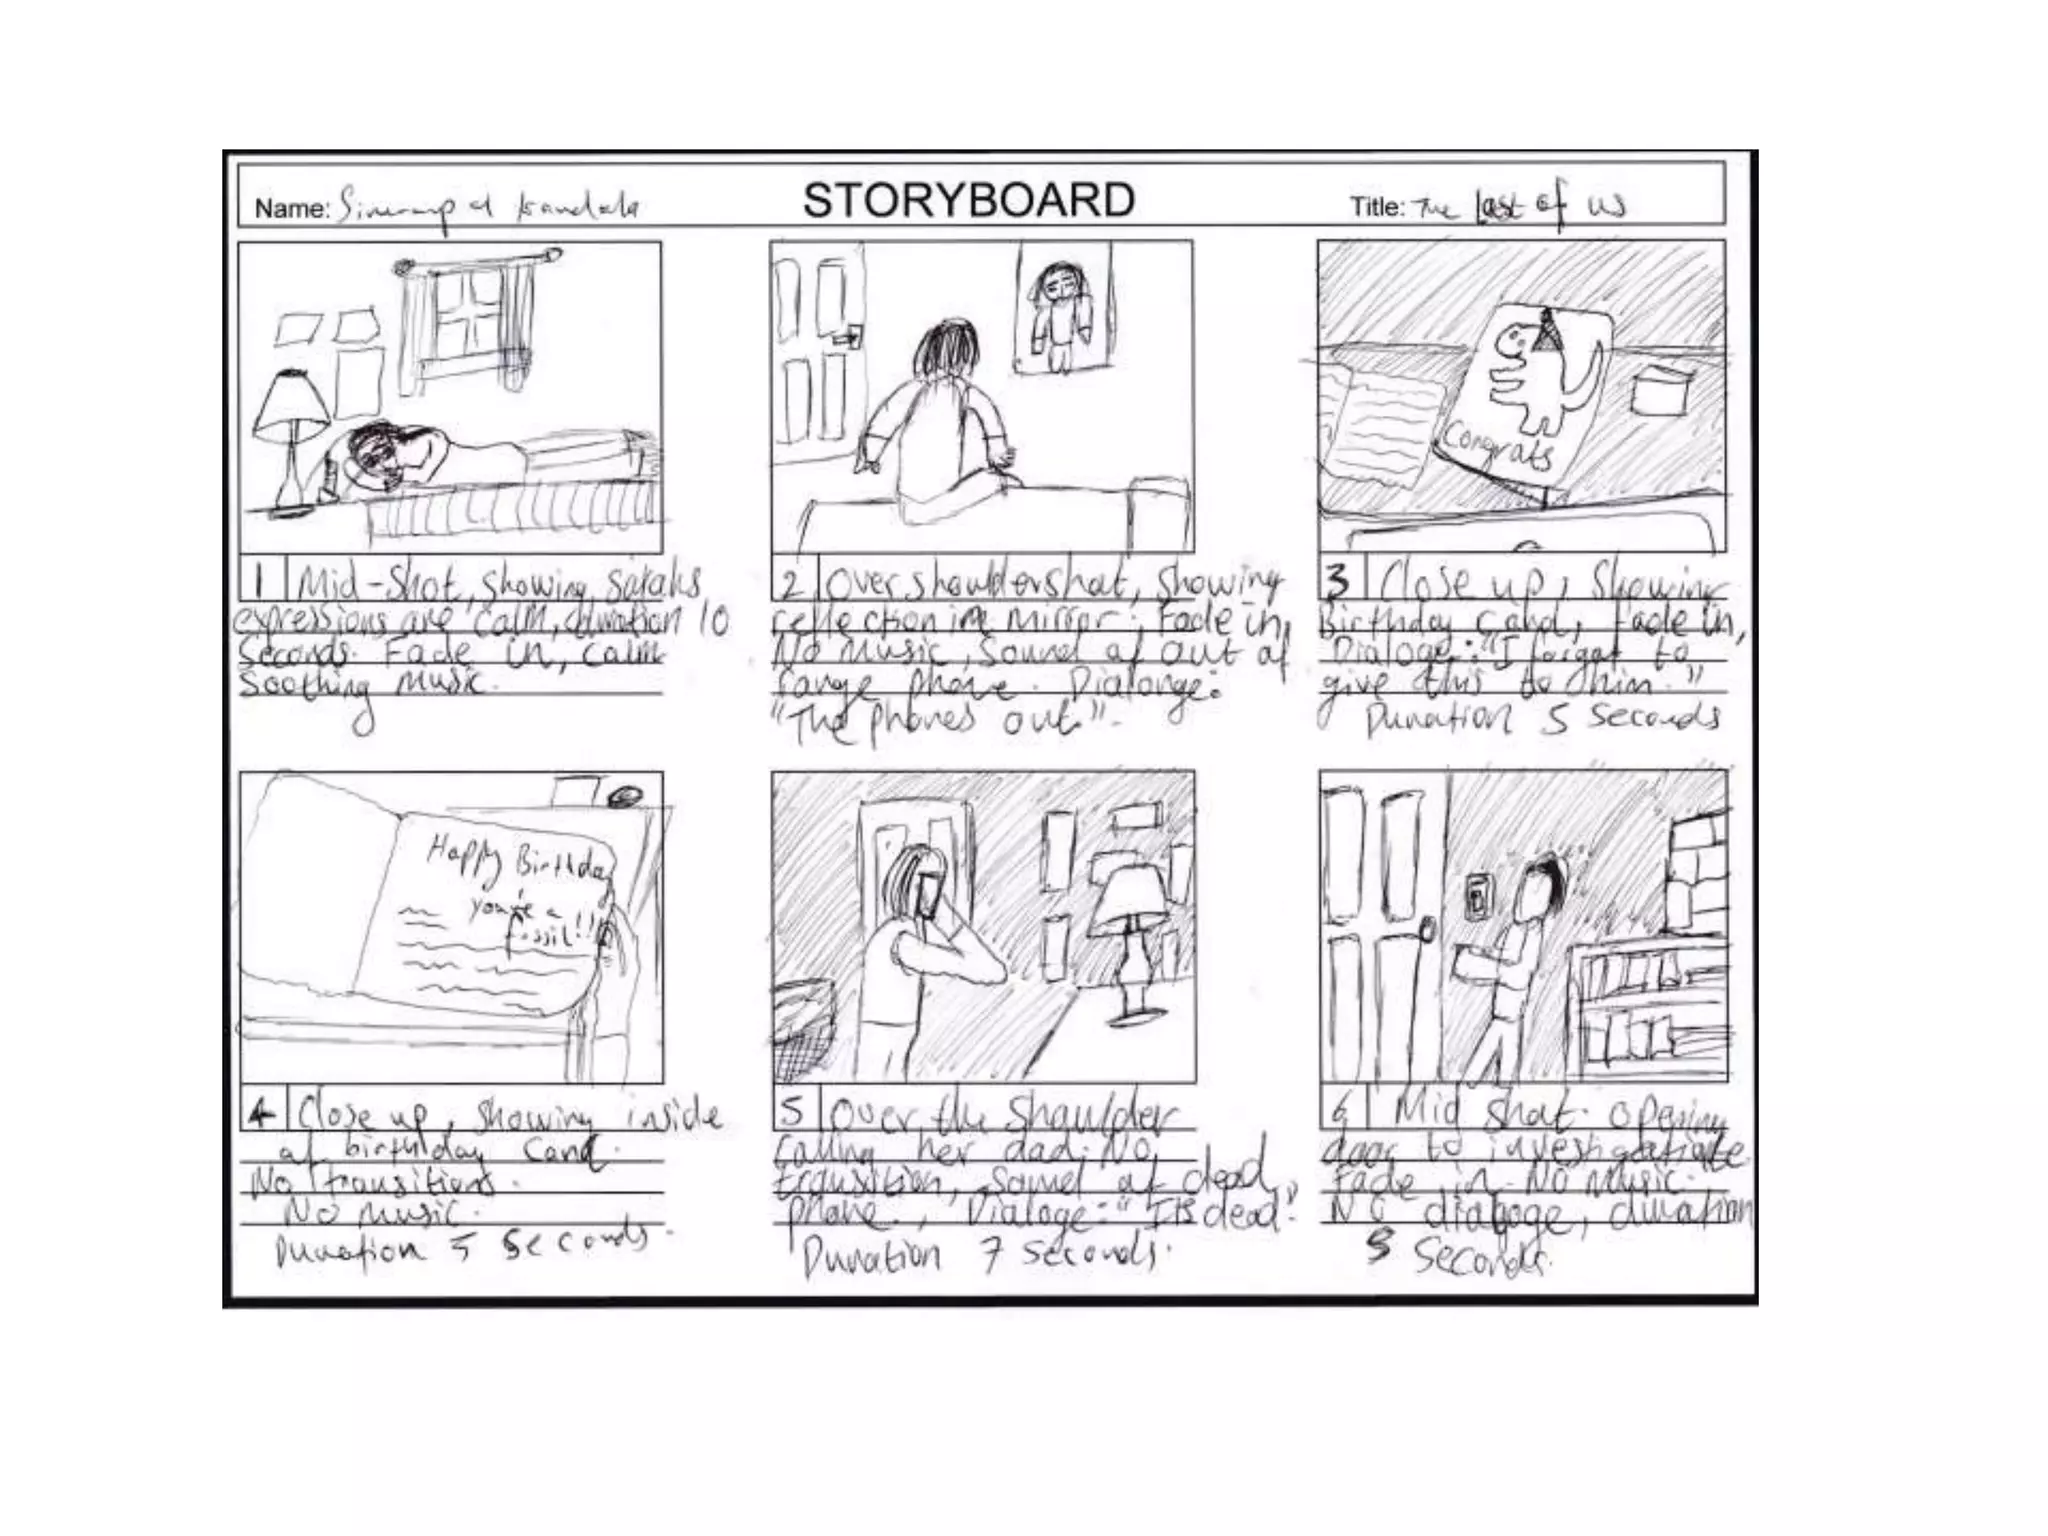 Name:
STORYBOARD
Title: The Last of Us
Congrats
1 Mid-Shot, showing Sarahs
expressions are calm, duration 10
Seconds. Fade in, calm
Soothing music.
2 Over shouldershot, showing
reflection in mirror. Fade in,
No music, Sound of out of
range phone. Dialonge:
"The phones out".
3 Close up, showing
Birthday card, fade in,
Dialoge: "I forgot to
give this to him."
Duration 5 seconds
Happy Birthday
you're a
fossil!!
4 Close up, showing inside
of birthday card.
No transitions.
No music.
Duration 5 seconds.
5 Over the shoulder
calling her dad. No
transition, sound of dead
phone., Dialoge: "Its dead."
Duration 7 seconds.
6 Mid shot. opening
door to
Fade in. No music.
No dialoge, duration
Seconds.